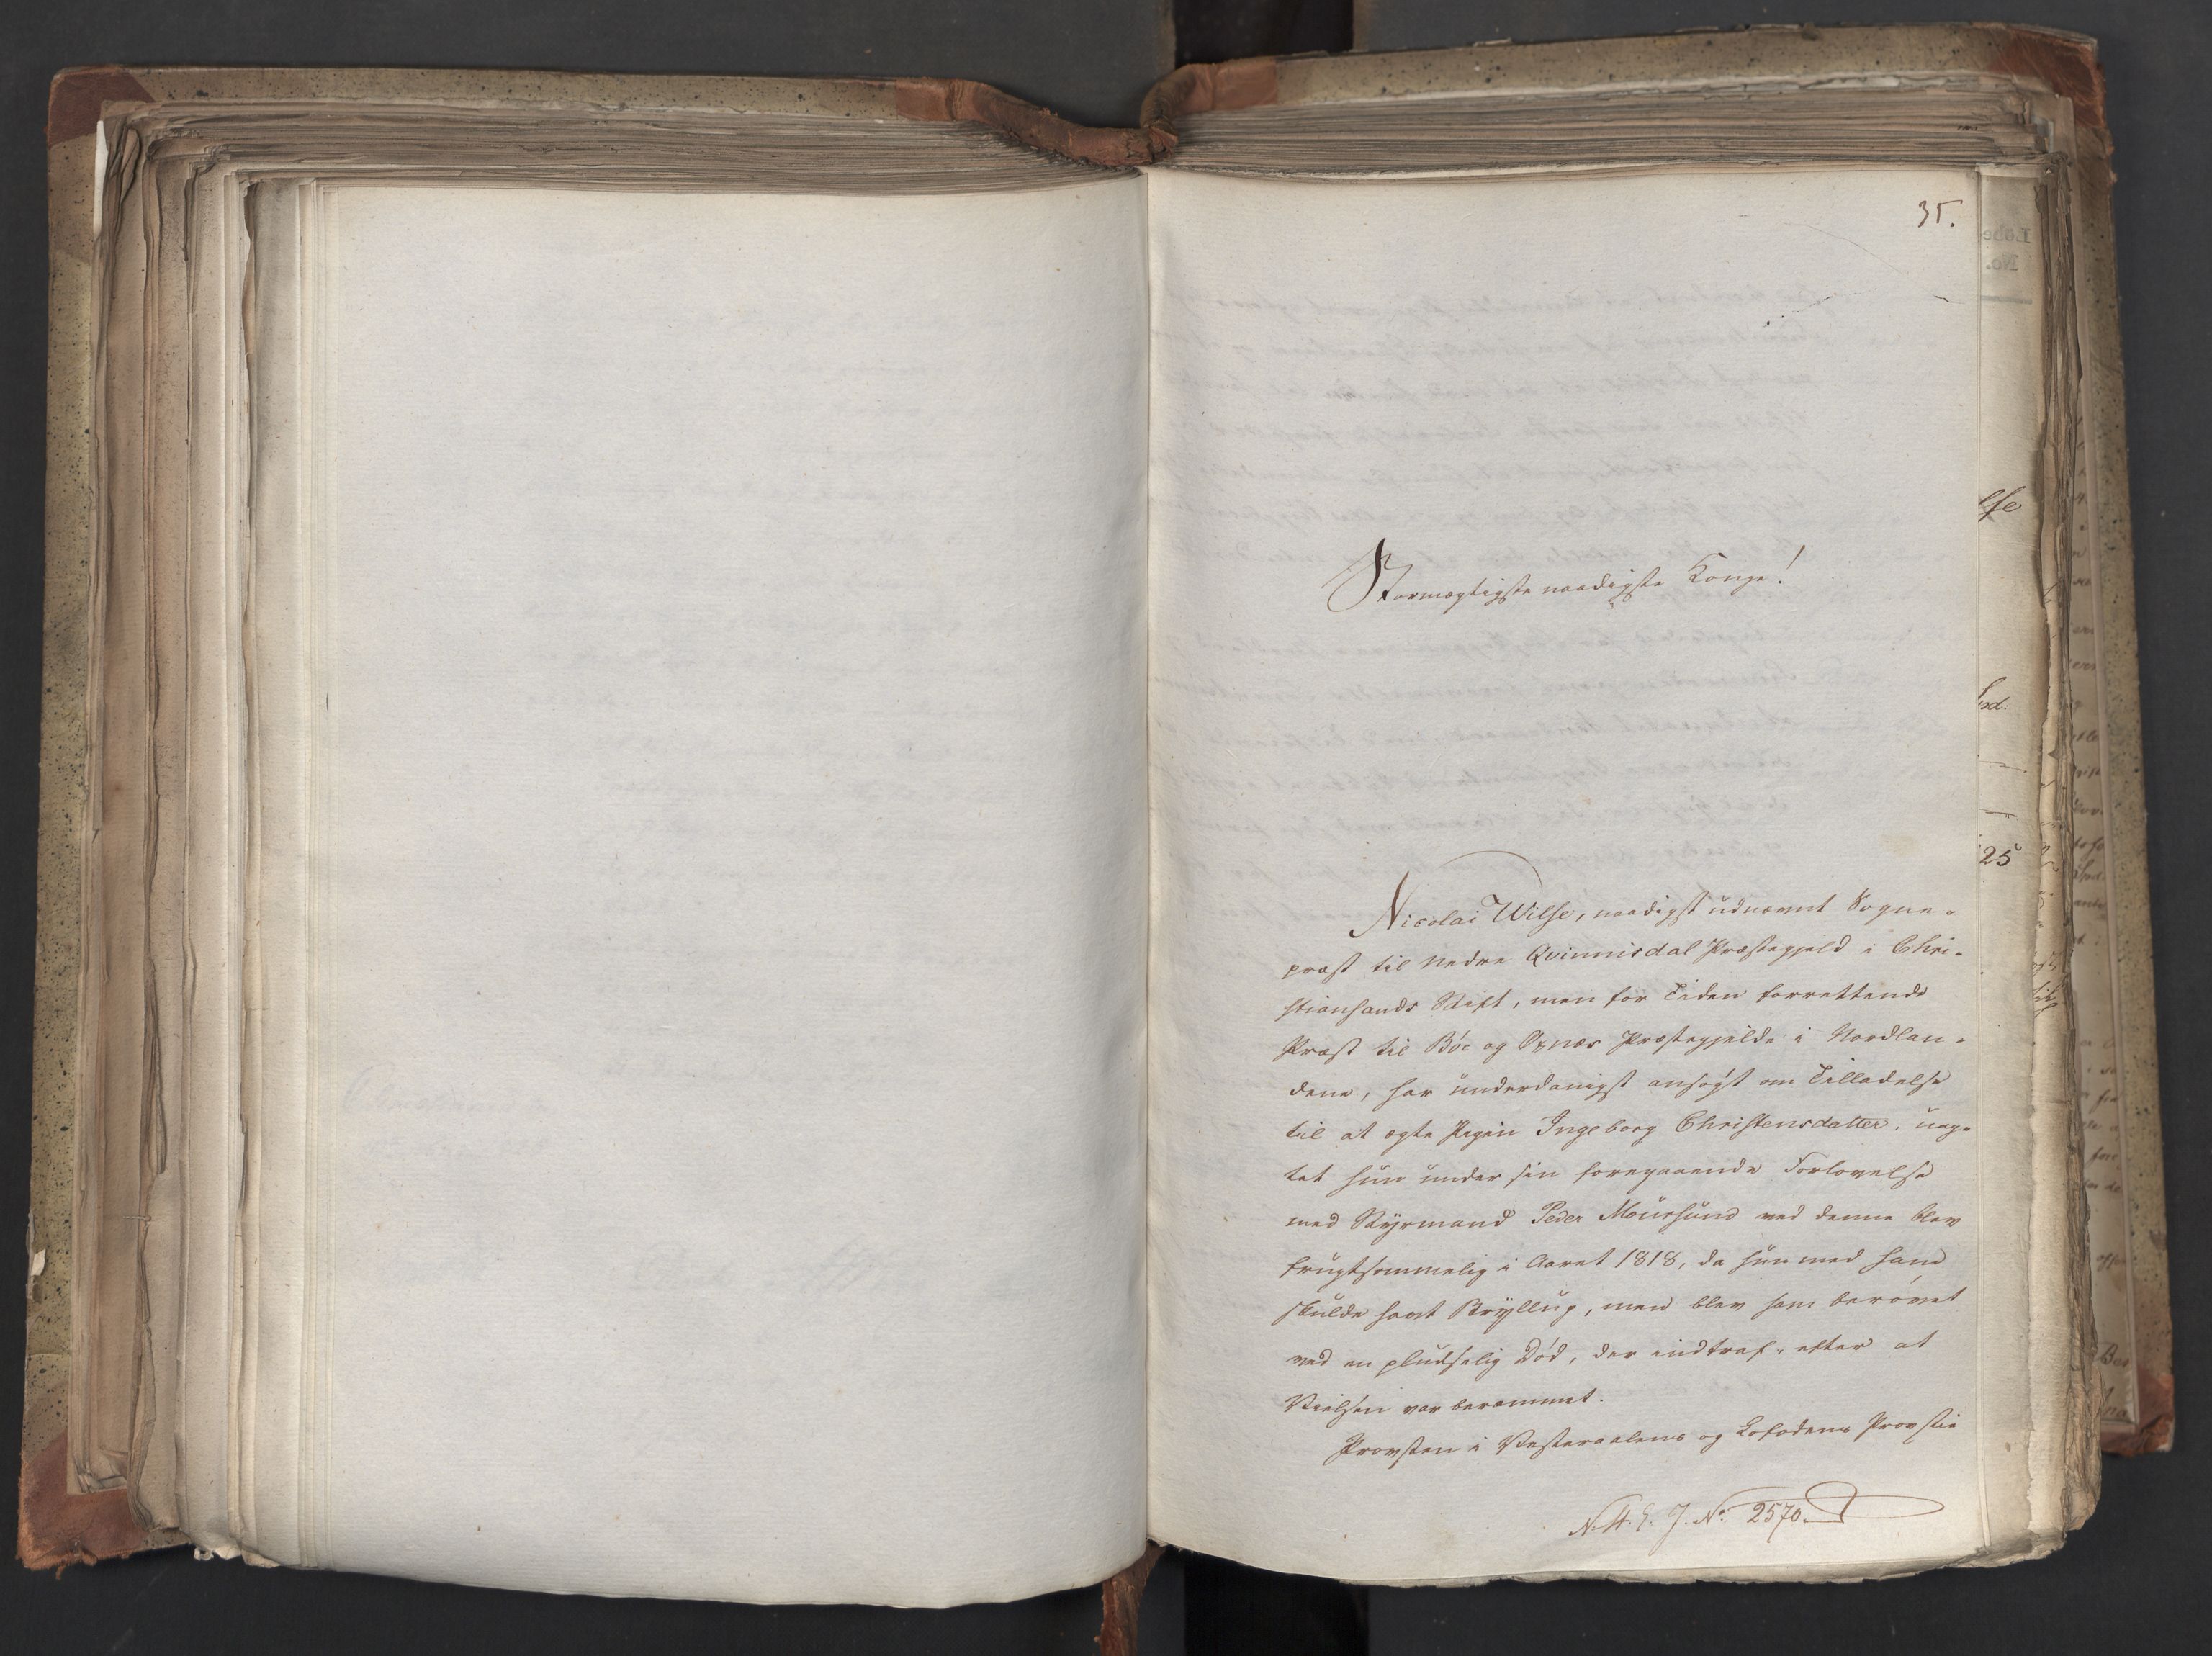 35.
Stormægtigste naadigste Konge!
Nicolai Wilse, naadigst udnævnt Sogne-
præst til Nedre Qvinnisdal Præstegjeld i Chri-
stiansands Stift, men for Tiden forrettende
Præst til Böe og Öxnæs Præstegjelde i Nordlan-
dene, har underdanigst ansøgt om Tilladelse
til at ægte Pigen Ingeborg Christensdatter, uag-
tet hun under sin foregaaende Forlovelse
med Styrmand Peder Moursund ved denne blev
frugtsommelig i Aaret 1818, da hun med ham
skulde havt Bryllup, men blev ham berøvet
ved en pludselig Død, der indtraf efter at
Vielsen var berammet.
Provsten i Vesteraalens og Lofodens Provstie
N. 4. E. J. No. 2570.
Løbe
No.
lse
hed:
25